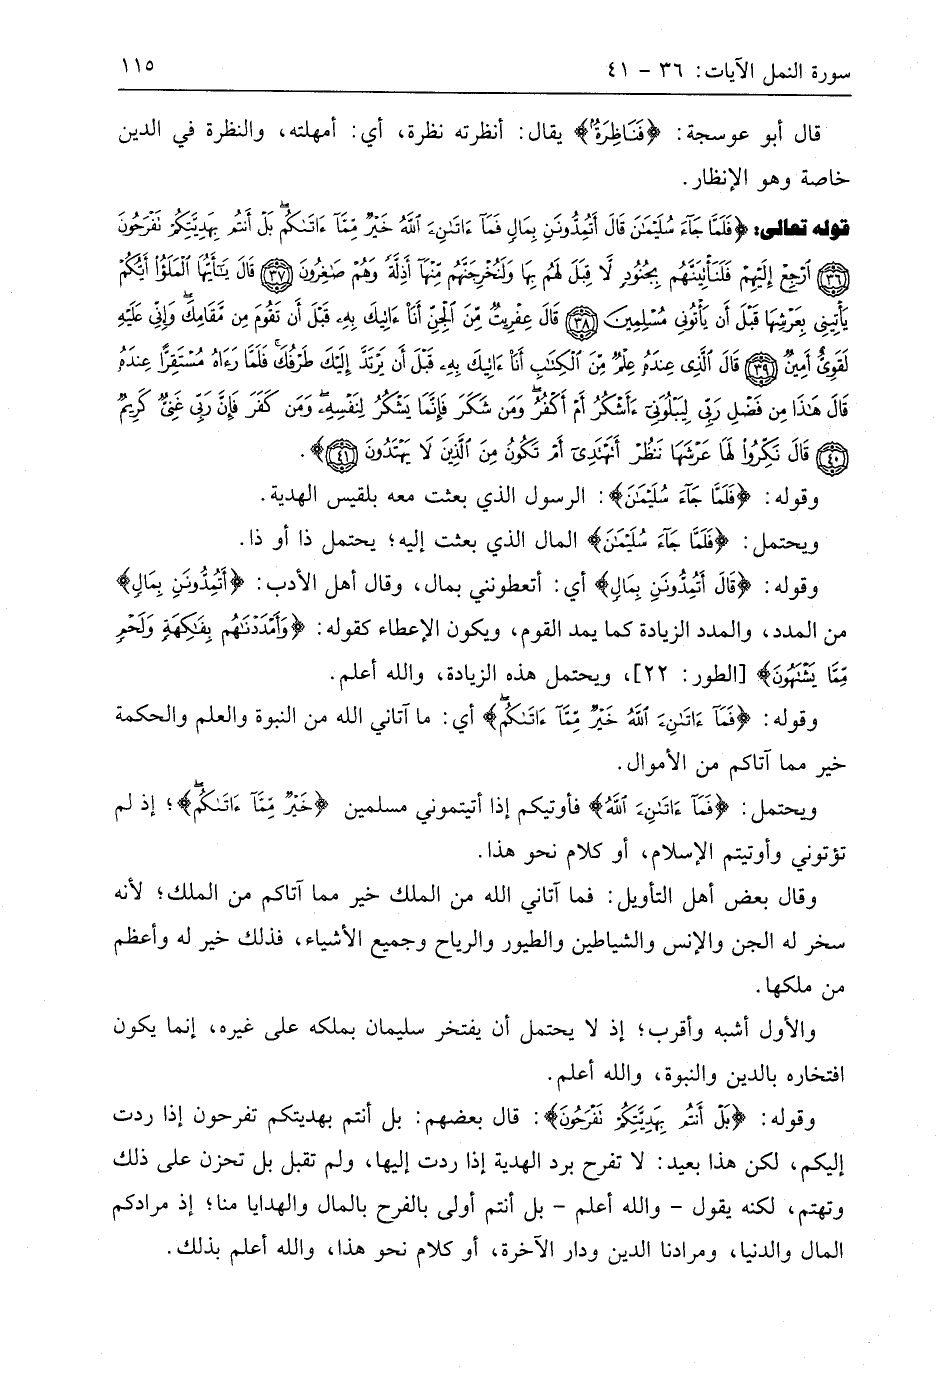 سورة النمل الآيات: ٣٦ - ٤١ ١١٥
قال أبو عوسجة: ﴿فَنَاظِرَةٌ﴾ يقال: أنظرته نظرة، أي: أمهلته، والنظرة في الدين
خاصة وهو الإنظار.
قوله تعالى: ﴿فَلَمَّا جَآءَ سُلَيْمَٰنَ قَالَ أَتُمِدُّونَنِ بِمَالٍ فَمَآ ءَاتَىٰنِۦَ ٱللَّهُ خَيْرٌ مِّمَّآ ءَاتَىٰكُمۖ بَلْ أَنتُم بِهَدِيَّتِكُمْ نَفْرَحُونَ
٣٦ ٱرْجِعْ إِلَيْهِمْ فَلَنَأْتِيَنَّهُم بِجُنُودٍ لَّا قِبَلَ لَهُم بِهَا وَلَنُخْرِجَنَّهُم مِّنْهَآ أَذِلَّةً وَهُمْ صَٰغِرُونَ ٣٧ قَالَ يَٰٓأَيُّهَا ٱلْمَلَؤُا۟ أَيُّكُمْ
يَأْتِينِى بِعَرْشِهَا قَبْلَ أَن يَأْتُونِى مُسْلِمِينَ ٣٨ قَالَ عِفْرِيتٌ مِّنَ ٱلْجِنِّ أَنَا۠ ءَاتِيكَ بِهِۦ قَبْلَ أَن تَقُومَ مِن مَّقَامِكَۖ وَإِنِّى عَلَيْهِ
لَقَوِىٌّ أَمِينٌ ٣٩ قَالَ ٱلَّذِى عِندَهُۥ عِلْمٌ مِّنَ ٱلْكِتَٰبِ أَنَا۠ ءَاتِيكَ بِهِۦ قَبْلَ أَن يَرْتَدَّ إِلَيْكَ طَرْفُكَۚ فَلَمَّا رَءَاهُ مُسْتَقِرًّا عِندَهُۥ
قَالَ هَٰذَا مِن فَضْلِ رَبِّى لِيَبْلُوَنِىٓ ءَأَشْكُرُ أَمْ أَكْفُرُۖ وَمَن شَكَرَ فَإِنَّمَا يَشْكُرُ لِنَفْسِهِۦۖ وَمَن كَفَرَ فَإِنَّ رَبِّى غَنِىٌّ كَرِيمٌ
٤٠ قَالَ نَكِّرُوا۟ لَهَا عَرْشَهَا نَنظُرْ أَتَهْتَدِىٓ أَمْ تَكُونُ مِنَ ٱلَّذِينَ لَا يَهْتَدُونَ ٤١﴾.
وقوله: ﴿فَلَمَّا جَآءَ سُلَيْمَٰنَ﴾: الرسول الذي بعثت معه بلقيس الهدية.
ويحتمل: ﴿فَلَمَّا جَآءَ سُلَيْمَٰنَ﴾ المال الذي بعثت إليه؛ يحتمل ذا أو ذا.
وقوله: ﴿قَالَ أَتُمِدُّونَنِ بِمَالٍ﴾ أي: أتعطونني بمال، وقال أهل الأدب: ﴿أَتُمِدُّونَنِ بِمَالٍ﴾
من المدد، والمدد الزيادة كما يمد القوم، ويكون الإعطاء كقوله: ﴿وَأَمْدَدْنَٰهُم بِفَٰكِهَةٍ وَلَحْمٍ
مِّمَّا يَشْتَهُونَ﴾ [الطور: ٢٢]، ويحتمل هذه الزيادة، والله أعلم.
وقوله: ﴿فَمَآ ءَاتَىٰنِۦَ ٱللَّهُ خَيْرٌ مِّمَّآ ءَاتَىٰكُمۖ﴾ أي: ما آتاني الله من النبوة والعلم والحكمة
خير مما آتاكم من الأموال.
ويحتمل: ﴿فَمَآ ءَاتَىٰنِۦَ ٱللَّهُ﴾ فأوتيكم إذا أتيتموني مسلمين ﴿خَيْرٌ مِّمَّآ ءَاتَىٰكُمۖ﴾؛ إذ لم
تؤتوني وأوتيتم الإسلام، أو كلام نحو هذا.
وقال بعض أهل التأويل: فما آتاني الله من الملك خير مما آتاكم من الملك؛ لأنه
سخر له الجن والإنس والشياطين والطيور والرياح وجميع الأشياء، فذلك خير له وأعظم
من ملكها.
والأول أشبه وأقرب؛ إذ لا يحتمل أن يفتخر سليمان بملكه على غيره، إنما يكون
افتخاره بالدين والنبوة، والله أعلم.
وقوله: ﴿بَلْ أَنتُم بِهَدِيَّتِكُمْ نَفْرَحُونَ﴾: قال بعضهم: بل أنتم بهديتكم تفرحون إذا ردت
إليكم، لكن هذا بعيد: لا تفرح برد الهدية إذا ردت إليها، ولم تقبل بل تحزن على ذلك
وتهتم، لكنه يقول - والله أعلم - بل أنتم أولى بالفرح بالمال والهدايا منا؛ إذ مرادكم
المال والدنيا، ومرادنا الدين ودار الآخرة، أو كلام نحو هذا، والله أعلم بذلك.